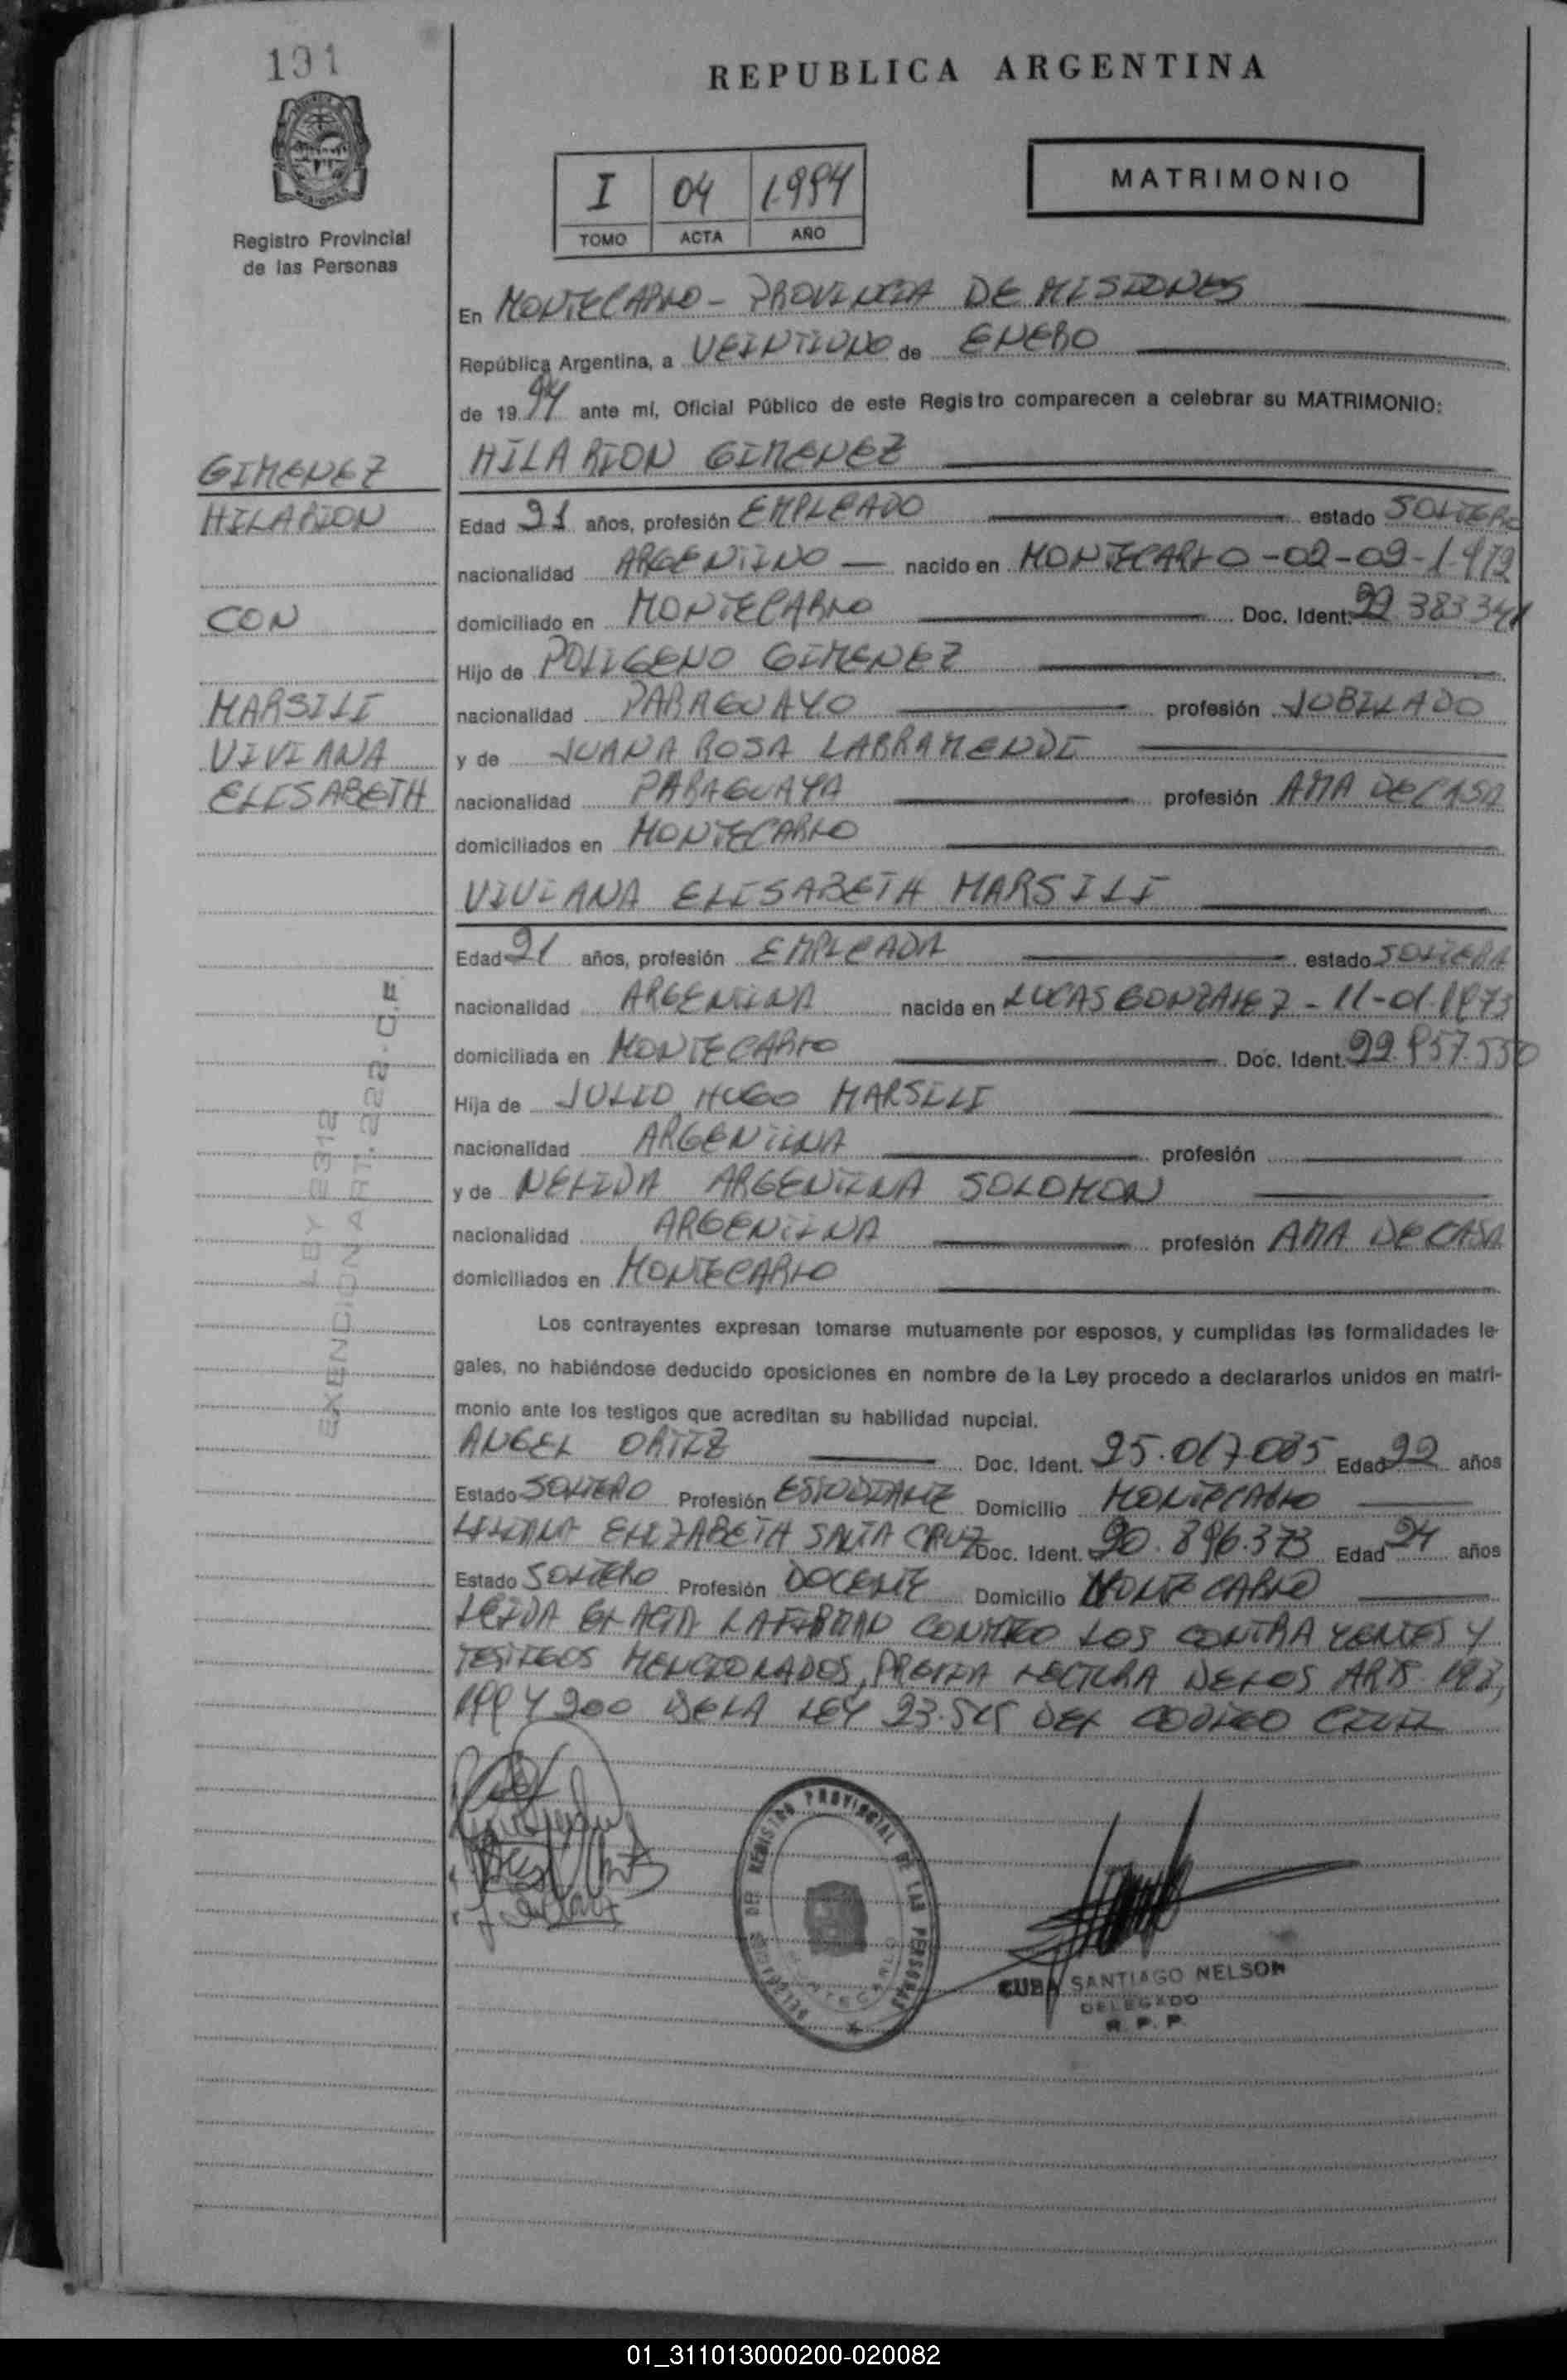 191
REPUBLICA ARGENTINA
MATRIMONIO
I 04 1.994
TOMO ACTA AÑO
Registro Provincial
de las Personas
En MONTECARLO - PROVINCIA DE MISIONES
República Argentina, a VEINTIUNO de ENERO
de 1994 ante mí, Oficial Público de este Registro comparecen a celebrar su MATRIMONIO:
GIMENEZ
HILARION
CON
MARSILI
VIVIANA
ELISABETH
HILARION GIMENEZ
Edad 21 años, profesión EMPLEADO estado SOLTERO
nacionalidad ARGENTINO nacido en MONTECARLO -02-09-1.972
domiciliado en MONTECARLO Doc. Ident. 22.383.341
Hijo de POLIGENO GIMENEZ
nacionalidad PARAGUAYO profesión JUBILADO
y de JUANA ROSA LABRAMENDI
nacionalidad PARAGUAYA profesión AMA DE CASA
domiciliados en MONTECARLO
VIVIANA ELISABETH MARSILI
Edad 21 años, profesión EMPLEADA estado SOLTERA
nacionalidad ARGENTINA nacida en LUCAS GONZALEZ - 11-01-1973
domiciliada en MONTECARLO Doc. Ident. 22.957.550
Hija de JULIO HUGO MARSILI
nacionalidad ARGENTINA profesión
y de NELIDA ARGENTINA SOLOMON
nacionalidad ARGENTINA profesión AMA DE CASA
domiciliados en MONTECARLO
LEY 2312
EXENCION ART. 222. C.F.
Los contrayentes expresan tomarse mutuamente por esposos, y cumplidas las formalidades le-
gales, no habiéndose deducido oposiciones en nombre de la Ley procedo a declararlos unidos en matri-
monio ante los testigos que acreditan su habilidad nupcial.
ANGEL ORTIZ Doc. Ident. 25.017.085 Edad 22 años
Estado SOLTERO Profesión ESTUDIANTE Domicilio MONTECARLO
LILIANA ELIZABETH SANTA CRUZ Doc. Ident. 20.896.373 Edad 24 años
Estado SOLTERO Profesión DOCENTE Domicilio MONTECARLO
LEIDA EL ACTA LA FIRMAN CONMIGO LOS CONTRAYENTES Y
TESTIGOS MENCIONADOS, PREVIA LECTURA DE LOS ARTS. 198,
199 Y 200 DE LA LEY 23.515 DEL CODIGO CIVIL
DELEGACION DEL REGISTRO PROVINCIAL DE LAS PERSONAS
MONTECARLO
CUBA SANTIAGO NELSON
DELEGADO
R. P. P.
01_311013000200-020082